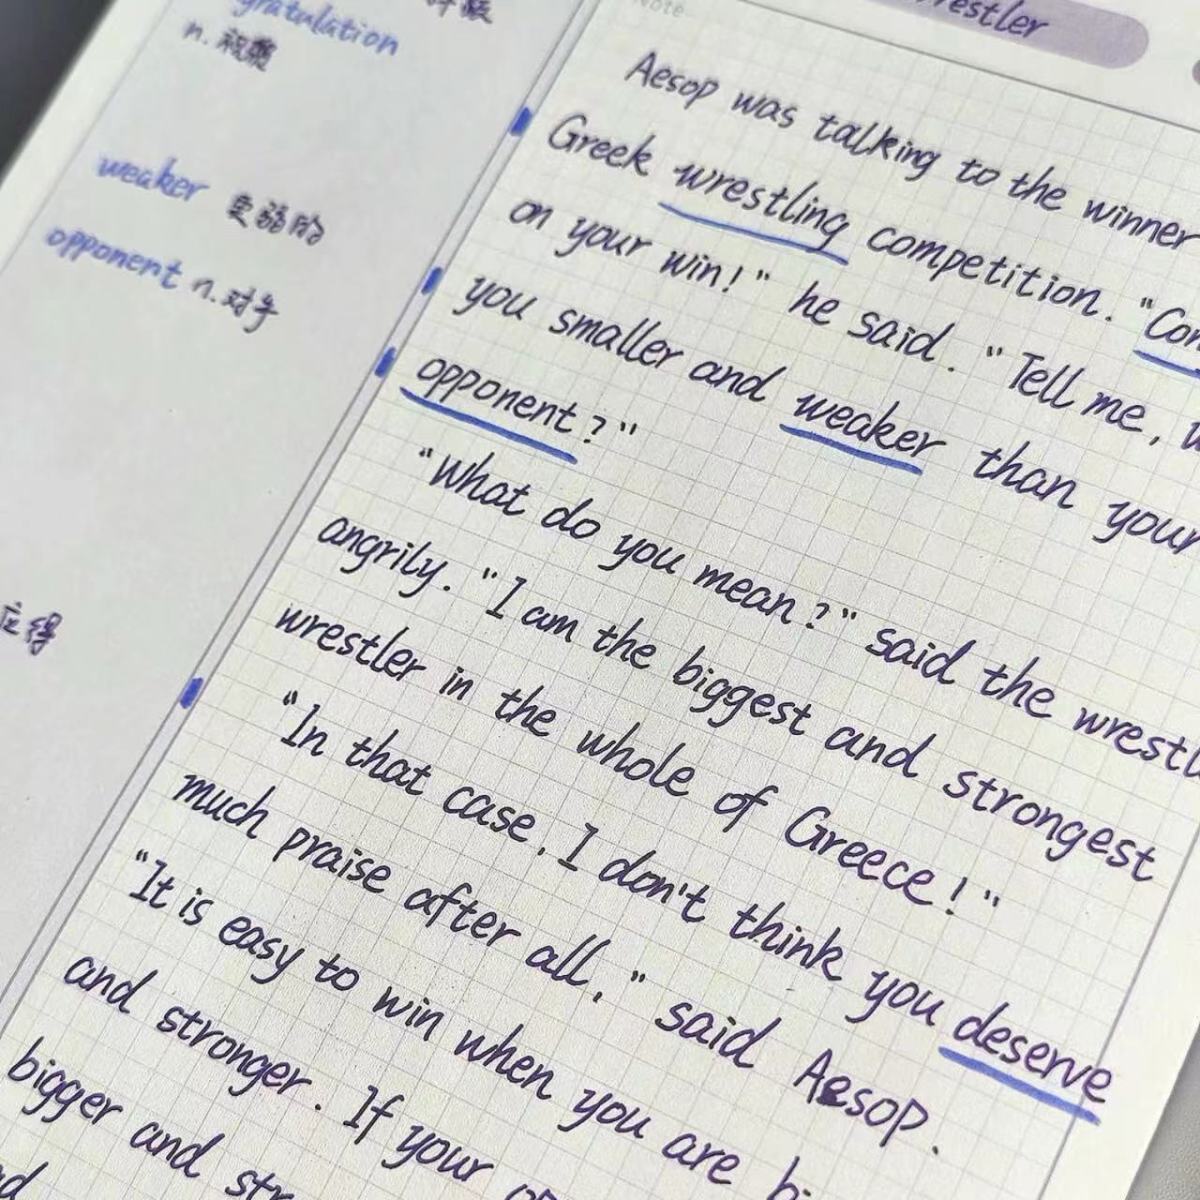 gratulation
n. 祝贺
weaker 更弱的
opponent n. 对手
应得
Note
Aesop was talking to the winner
Greek wrestling competition. "Con
on your win!" he said. "Tell me, w
you smaller and weaker than your
opponent?"
"What do you mean?" said the wrestl
angrily. "I am the biggest and strongest
wrestler in the whole of Greece!"
"In that case, I don't think you deserve
much praise after all," said Aesop.
"It is easy to win when you are bi
and stronger. If your op
bigger and str